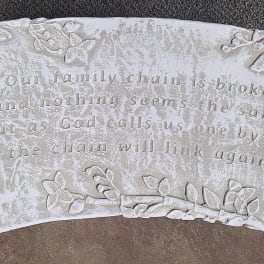 Our family chain is brok
and nothing seems the sa
ut as God calls us one by
the chain will link again